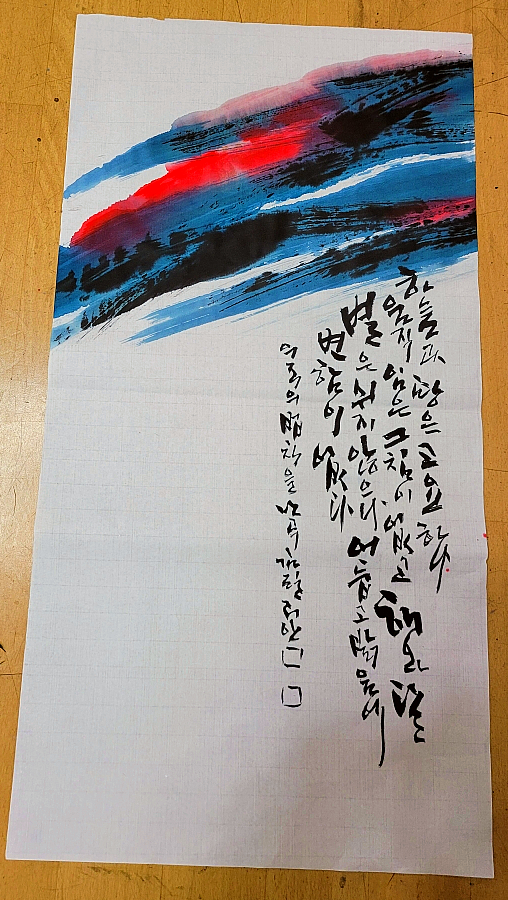 하늘과 땅은 고요하나
움직임은 그침이 없고 해와 달
별은 쉬지 않으나 어둡고 밝음에
변함이 없다